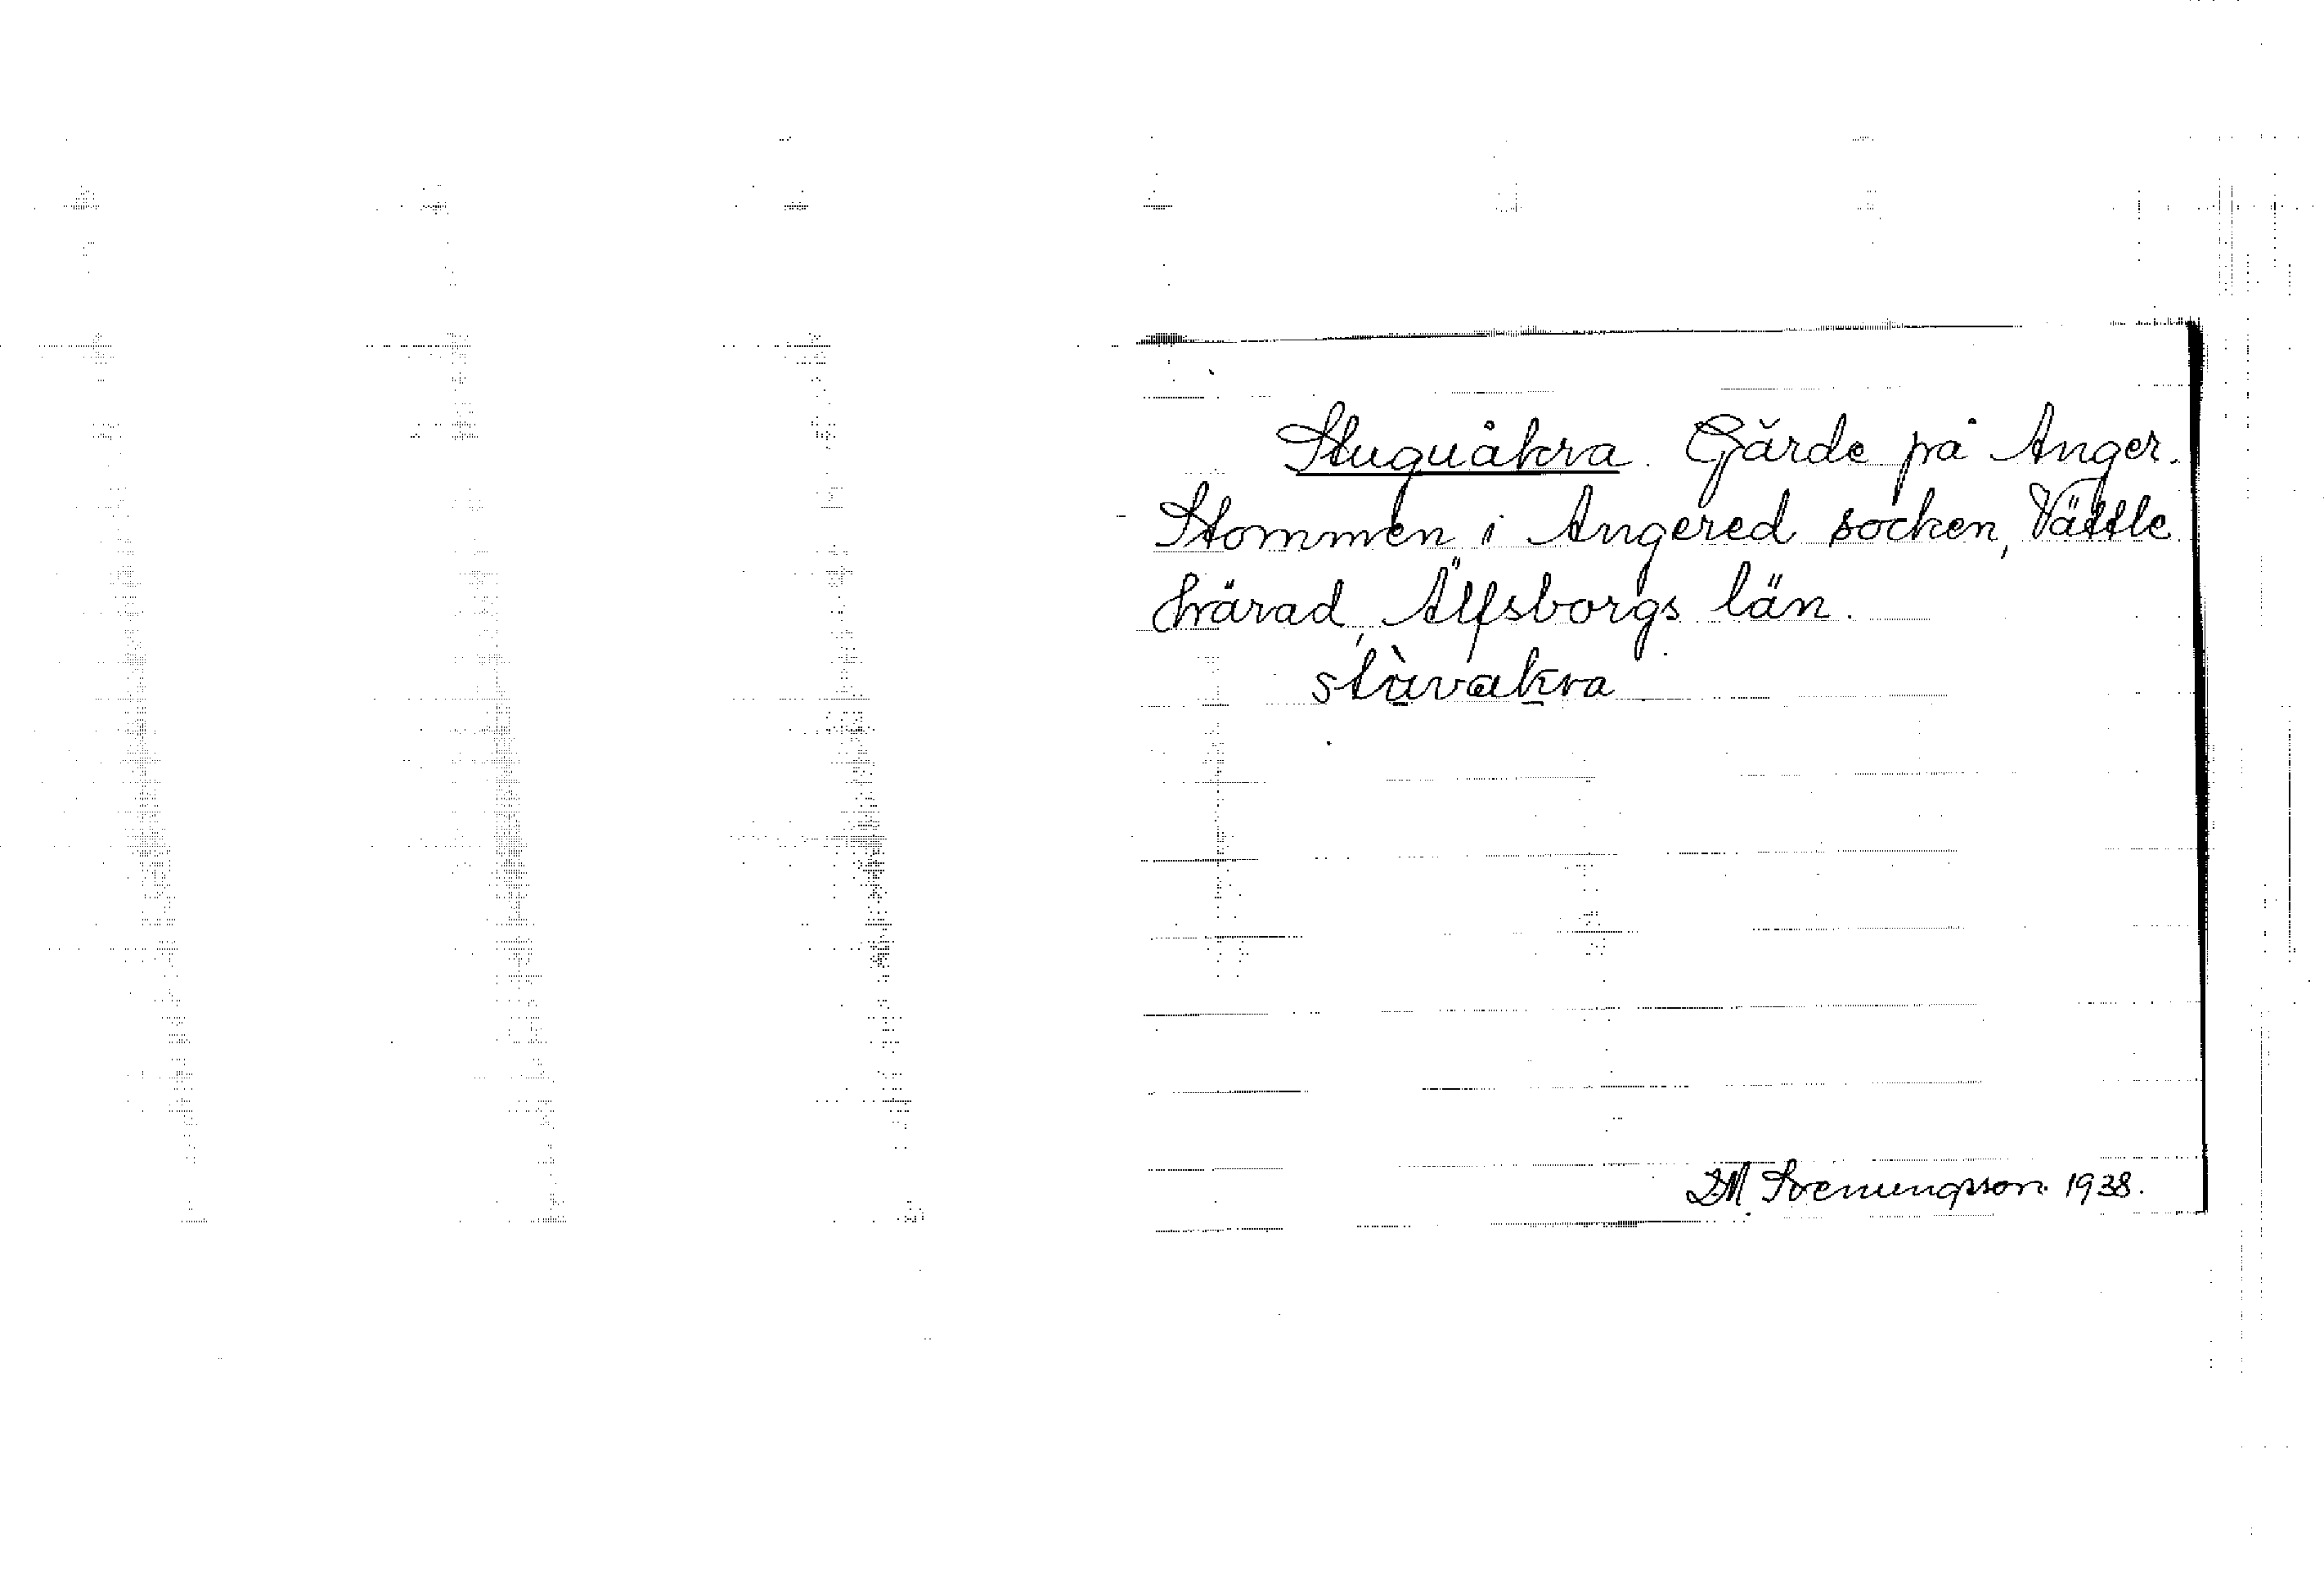 Stuguåkra. Gärde på Anger.
Stommen i Angered socken, Vättle
härad, Älfsborgs län.
stùvakra
DM Svenungsson 1938.